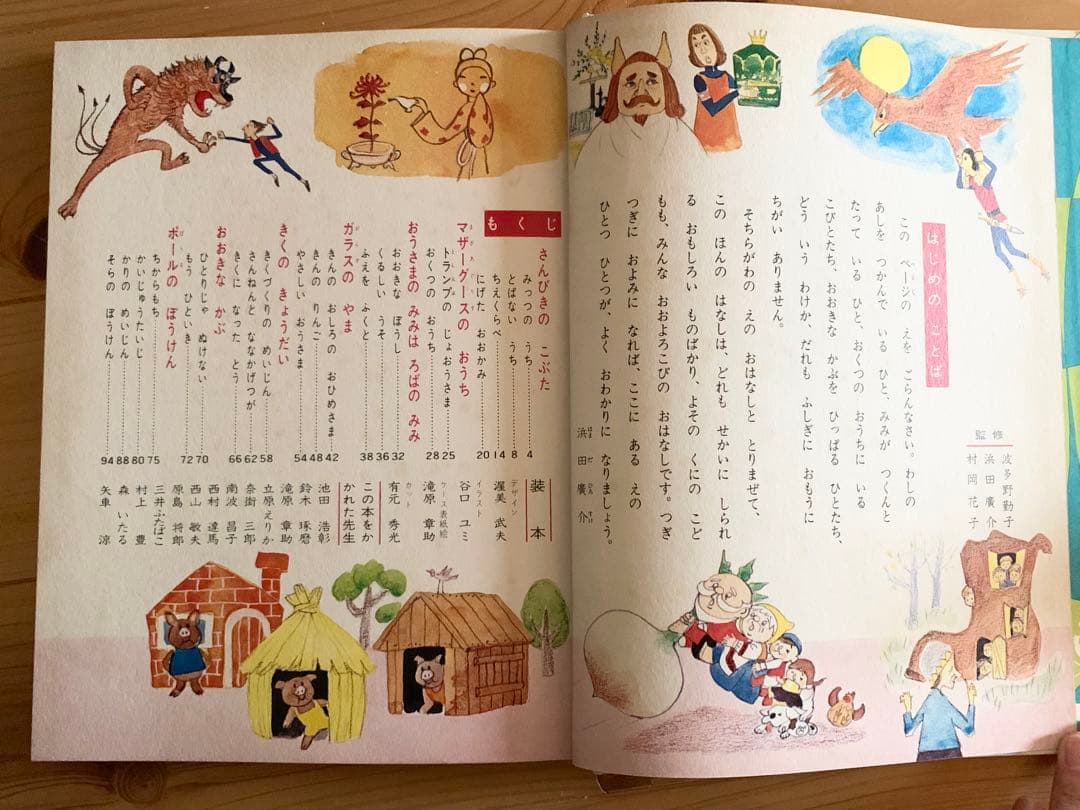 はじめの ことば
この ページの えを ごらんなさい。わしの
あしを つかんで いる ひと、みみが つくんと
たって いる ひと、おくつの おうちに いる
こびとたち、おおきな かぶを ひっぱる ひとたち、
どう いう わけか、だれも ふしぎに おもうに
ちがい ありません。
そちらがわの えの おはなしと とりまぜて、
この ほんの はなしは、どれも せかいに しられ
る おもしろい ものばかり、よその くにの こど
もも、みんな おおよろこびの おはなしです。つぎ
つぎに およみに なれば、ここに ある えの
ひとつ ひとつが、よく おわかりに なりましょう。
浜田廣介
はまだひろすけ
監修
波多野勤子
浜田廣介
村岡花子
もくじ
さんびきの こぶた
みっつの うち 4
とばない うち 8
ちえくらべ 14
にげた おおかみ 20
マザーグースの おうち
トランプの じょおうさま 25
おくつの おうち 28
おうさまの みみは ろばの みみ
おおきな ぼうし 32
くるしい うそ 36
ふえを ふくと 38
ガラスの やま
きんの おしろの おひめさま 42
きんの りんご 48
やさしい おうさま 54
きくの きょうだい
きくづくりの めいじん 58
さんねんと ななかげつが 62
きくに なった とう 66
おおきな かぶ
ひとりじゃ ぬけない 70
もう ひといき 72
ポールの ぼうけん
ちからもち 75
かいじゅうたいじ 80
かりの めいじん 88
そらの ぼうけん 94
装本
デザイン
渥美 武夫
イラスト
谷口 ユミ
ケース表紙絵
滝原 章助
カット
有元 秀光
この本をか
かれた先生
池田 浩彰
鈴木 琢磨
滝原 章助
立原えりか
奈街 三郎
南波 昌子
西村 達馬
西山 敏夫
原島 将郎
三井ふたばこ
村上 豊
森 いたる
矢車 涼